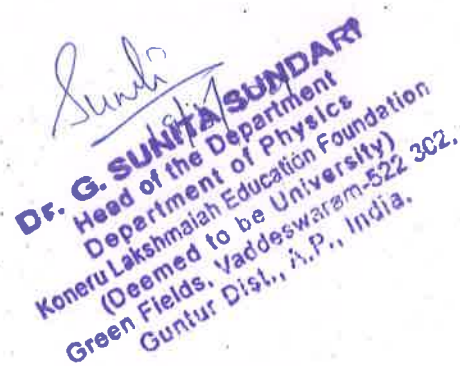 Dr. G. SUNITA SUNDARI
Head of the Department
Department of Physics
Koneru Lakshmaiah Education Foundation
(Deemed to be University)
Green Fields, Vaddeswaram-522 302.
Guntur Dist., A.P., India.